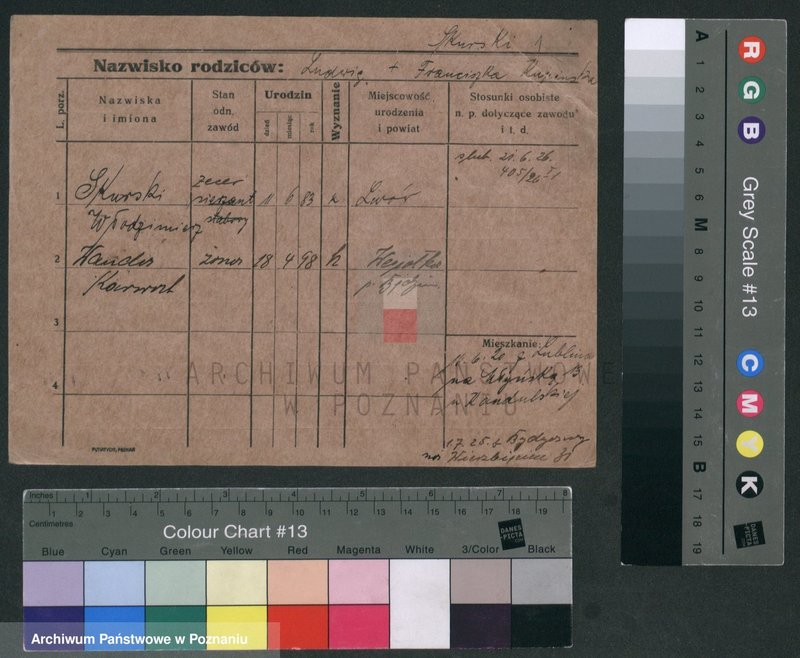 Skurski
Nazwisko rodziców: Ludwig + Franciszka
L. porz.
Nazwiska
i imiona
Stan
odn.
zawód
Urodzin
dzień
miesiąc
rok
Wyznanie
Miejscowość
urodzenia
i powiat
Stosunki osobiste
n. p. dotyczące zawodu
i t. d.
ślub. 20.6.26.
405/26
1
Skurski
Włodzimierz
zecer
sierżant
11 6 83
Lwów
2
Wanda
żona 18 4 98
3
Mieszkanie:
11.6.20 z Lublina
na
u
4
ARCHIWUM PAŃSTWOWE
W POZNANIU
1.7.25 z Bydgoszczy
na 31
PUTIATYCKI, POZNAŃ
Inches 1 2 3 4 5 6 7 8
1 2 3 4 5 6 7 8 9 10 11 12 13 14 15 16 17 18 19
Centimetres
Colour Chart #13
DANES-PICTA.COM
Blue Cyan Green Yellow Red Magenta White 3/Color Black
Archiwum Państwowe w Poznaniu
A 1 2 3 4 5 6 M 8 9 10 11 12 13 14 15 B 17 18 19
R G B
Grey Scale #13
C M Y K
DANES-PICTA.COM